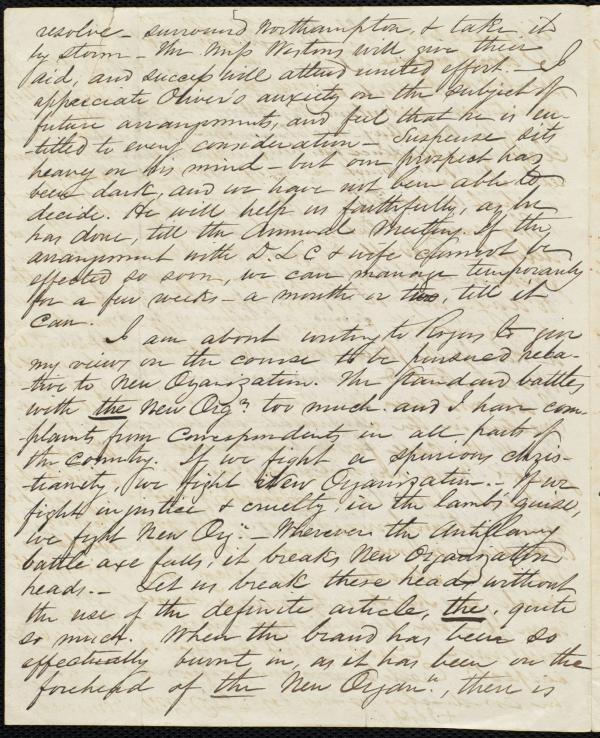 resolve - surround Northampton, & take it
by storm - The Miss Westons will give their
aid, and success will attend united effort. - I
appreciate Oliver's anxiety on the subject of
future arrangements, and feel that he is en-
-titled to every consideration - Suspense sits
heavy on his mind - but our prospect has
been dark, and we have not been able to
decide. He will help us faithfully, as he
has done, till the Annual Meeting. If the
arrangement with D. L. C & wife cannot be
effected so soon, we can manage temporarily
for a few weeks - a month or two, till it
can.
I am about writing to Rogers to give
my views on the course to be pursued rela-
-tive to New Organization. The Standard battles
with the New Orgn. too much. and I have com-
-plaints from correspondents in all parts of
the country. If we fight a spurious chris-
-tianity, we fight New Organization. - If we
fight injustice & cruelty in the lambs guise,
we fight New Orgn. - Wherever the Antislavery
battle axe falls, it breaks New Organization
heads. - Let us break these heads without
the use of the definite article, the, quite
so much. When the brand has been so
effectually burnt in, as it has been on the
forehead of the New Organn., there is